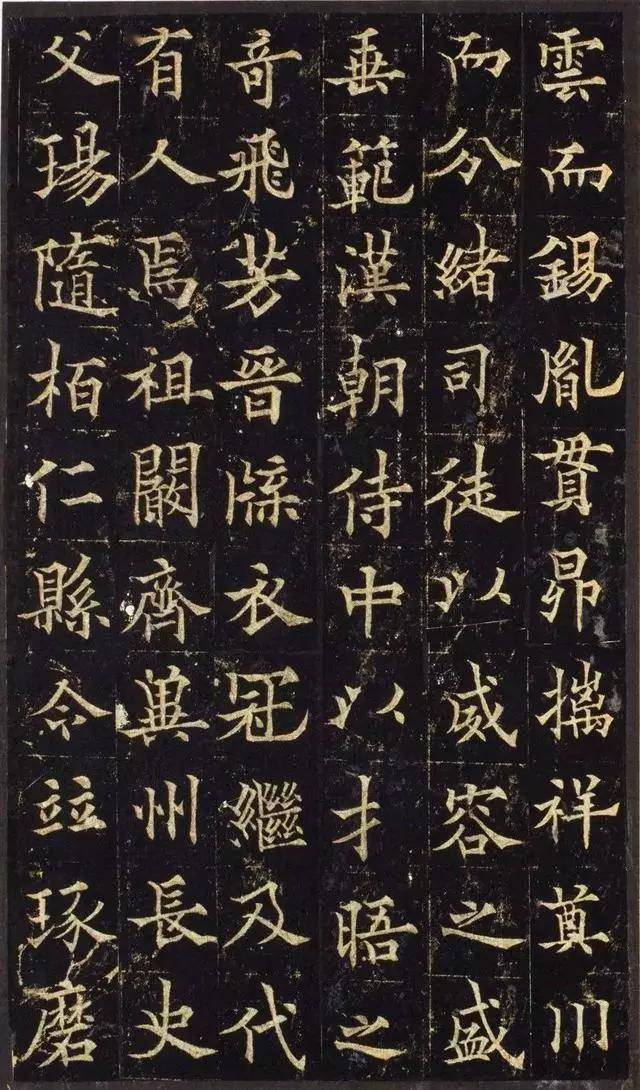 雲而錫胤貫昴摛祥奠川
而分緒司徒以威容之盛
垂範漢朝侍中以才晤之
奇飛芳晉牒衣冠繼及代
有人焉祖闞齊冀州長史
父瑒隨栢仁縣令竝琢磨